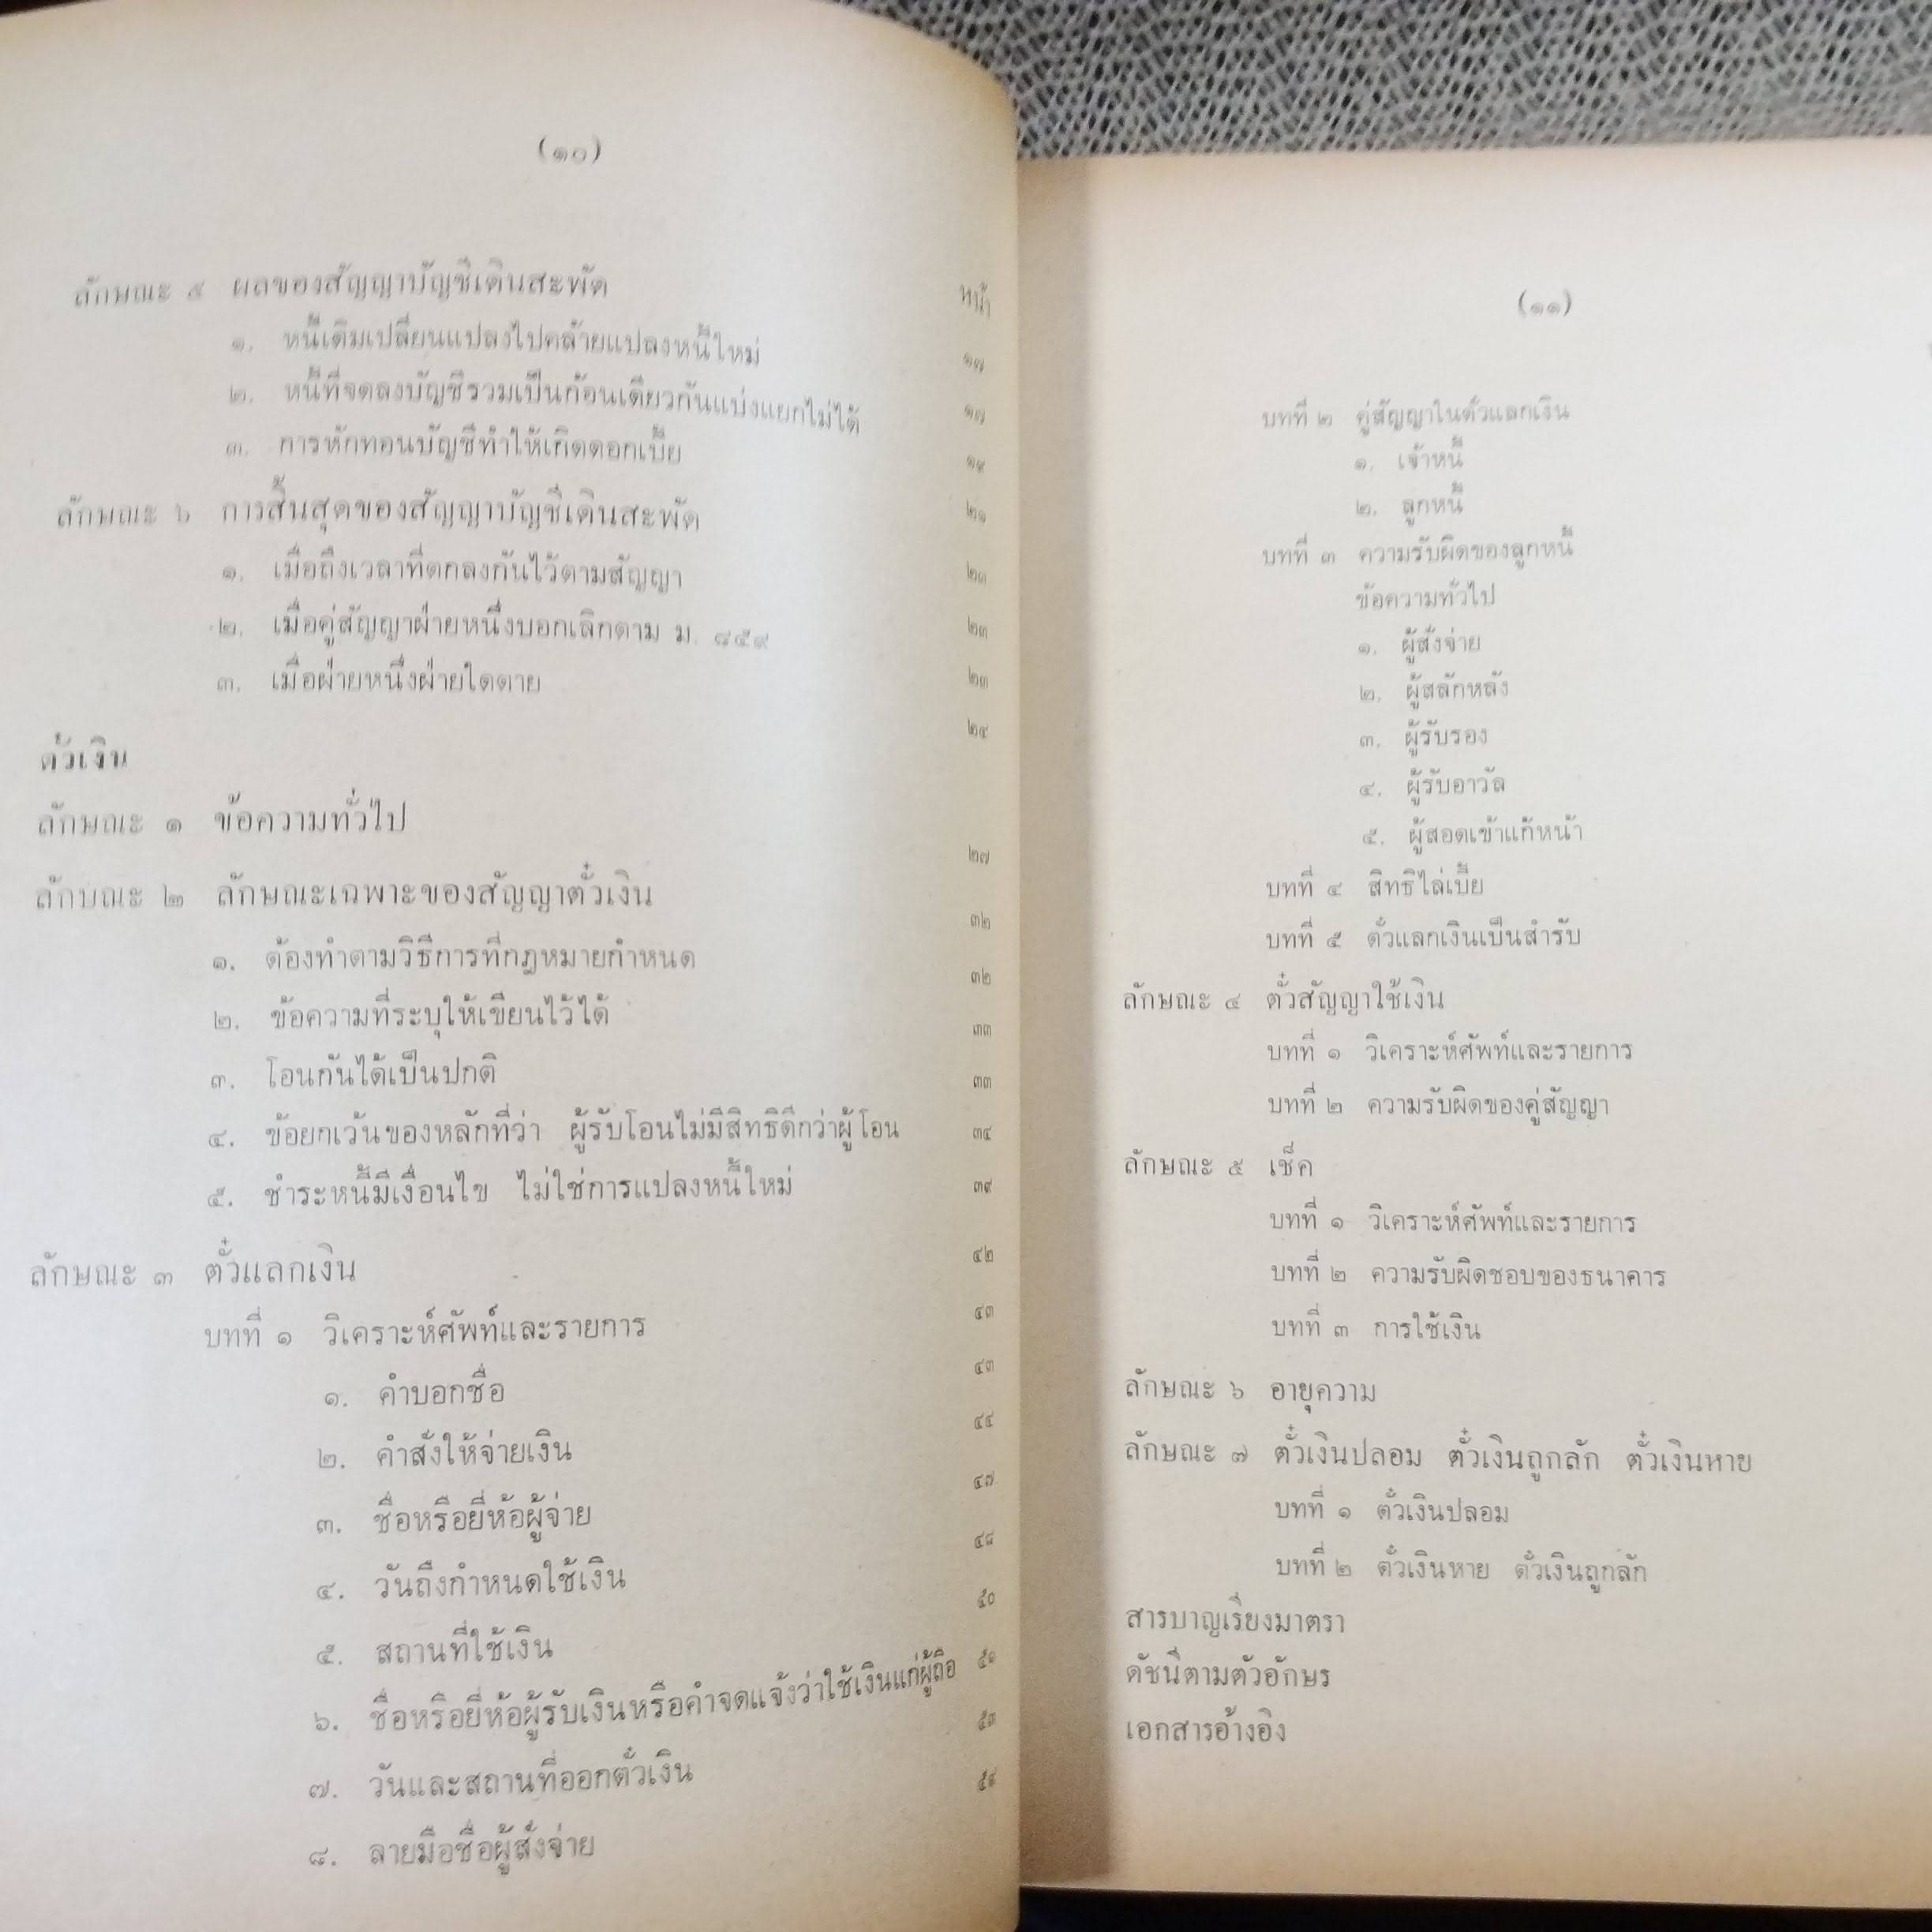 (๑๐)
หน้า
ลักษณะ ๕ ผลของสัญญาบัญชีเดินสะพัด ๑๗
๑. หนี้เดิมเปลี่ยนแปลงไปคล้ายแปลงหนี้ใหม่ ๑๗
๒. หนี้ที่จดลงบัญชีรวมเป็นก้อนเดียวกันแบ่งแยกไม่ได้ ๑๙
๓. การหักทอนบัญชีทำให้เกิดดอกเบี้ย ๒๑
ลักษณะ ๖ การสิ้นสุดของสัญญาบัญชีเดินสะพัด ๒๓
๑. เมื่อถึงเวลาที่ตกลงกันไว้ตามสัญญา ๒๓
๒. เมื่อคู่สัญญาฝ่ายหนึ่งบอกเลิกตาม ม. ๘๕๙ ๒๓
๓. เมื่อฝ่ายหนึ่งฝ่ายใดตาย ๒๔
ตั๋วเงิน
ลักษณะ ๑ ข้อความทั่วไป ๒๗
ลักษณะ ๒ ลักษณะเฉพาะของสัญญาตั๋วเงิน ๓๒
๑. ต้องทำตามวิธีการที่กฎหมายกำหนด ๓๒
๒. ข้อความที่ระบุให้เขียนไว้ได้ ๓๓
๓. โอนกันได้เป็นปกติ ๓๓
๔. ข้อยกเว้นของหลักที่ว่า ผู้รับโอนไม่มีสิทธิดีกว่าผู้โอน ๓๔
๕. ชำระหนี้มีเงื่อนไข ไม่ใช่การแปลงหนี้ใหม่ ๓๙
ลักษณะ ๓ ตั๋วแลกเงิน ๔๒
บทที่ ๑ วิเคราะห์ศัพท์และรายการ ๔๓
๑. คำบอกชื่อ ๔๓
๒. คำสั่งให้จ่ายเงิน ๔๔
๓. ชื่อหรือยี่ห้อผู้จ่าย ๔๗
๔. วันถึงกำหนดใช้เงิน ๔๘
๕. สถานที่ใช้เงิน ๕๐
๖. ชื่อหรือยี่ห้อผู้รับเงินหรือคำจดแจ้งว่าใช้เงินแก่ผู้ถือ ๕๑
๗. วันและสถานที่ออกตั๋วเงิน ๕๓
๘. ลายมือชื่อผู้สั่งจ่าย
(๑๑)
บทที่ ๒ คู่สัญญาในตั๋วแลกเงิน
๑. เจ้าหนี้
๒. ลูกหนี้
บทที่ ๓ ความรับผิดของลูกหนี้
ข้อความทั่วไป
๑. ผู้สั่งจ่าย
๒. ผู้สลักหลัง
๓. ผู้รับรอง
๔. ผู้รับอาวัล
๕. ผู้สอดเข้าแก้หน้า
บทที่ ๔ สิทธิไล่เบี้ย
บทที่ ๕ ตั๋วแลกเงินเป็นสำรับ
ลักษณะ ๔ ตั๋วสัญญาใช้เงิน
บทที่ ๑ วิเคราะห์ศัพท์และรายการ
บทที่ ๒ ความรับผิดของคู่สัญญา
ลักษณะ ๕ เช็ค
บทที่ ๑ วิเคราะห์ศัพท์และรายการ
บทที่ ๒ ความรับผิดชอบของธนาคาร
บทที่ ๓ การใช้เงิน
ลักษณะ ๖ อายุความ
ลักษณะ ๗ ตั๋วเงินปลอม ตั๋วเงินถูกลัก ตั๋วเงินหาย
บทที่ ๑ ตั๋วเงินปลอม
บทที่ ๒ ตั๋วเงินหาย ตั๋วเงินถูกลัก
สารบาญเรียงมาตรา
ดัชนีตามตัวอักษร
เอกสารอ้างอิง